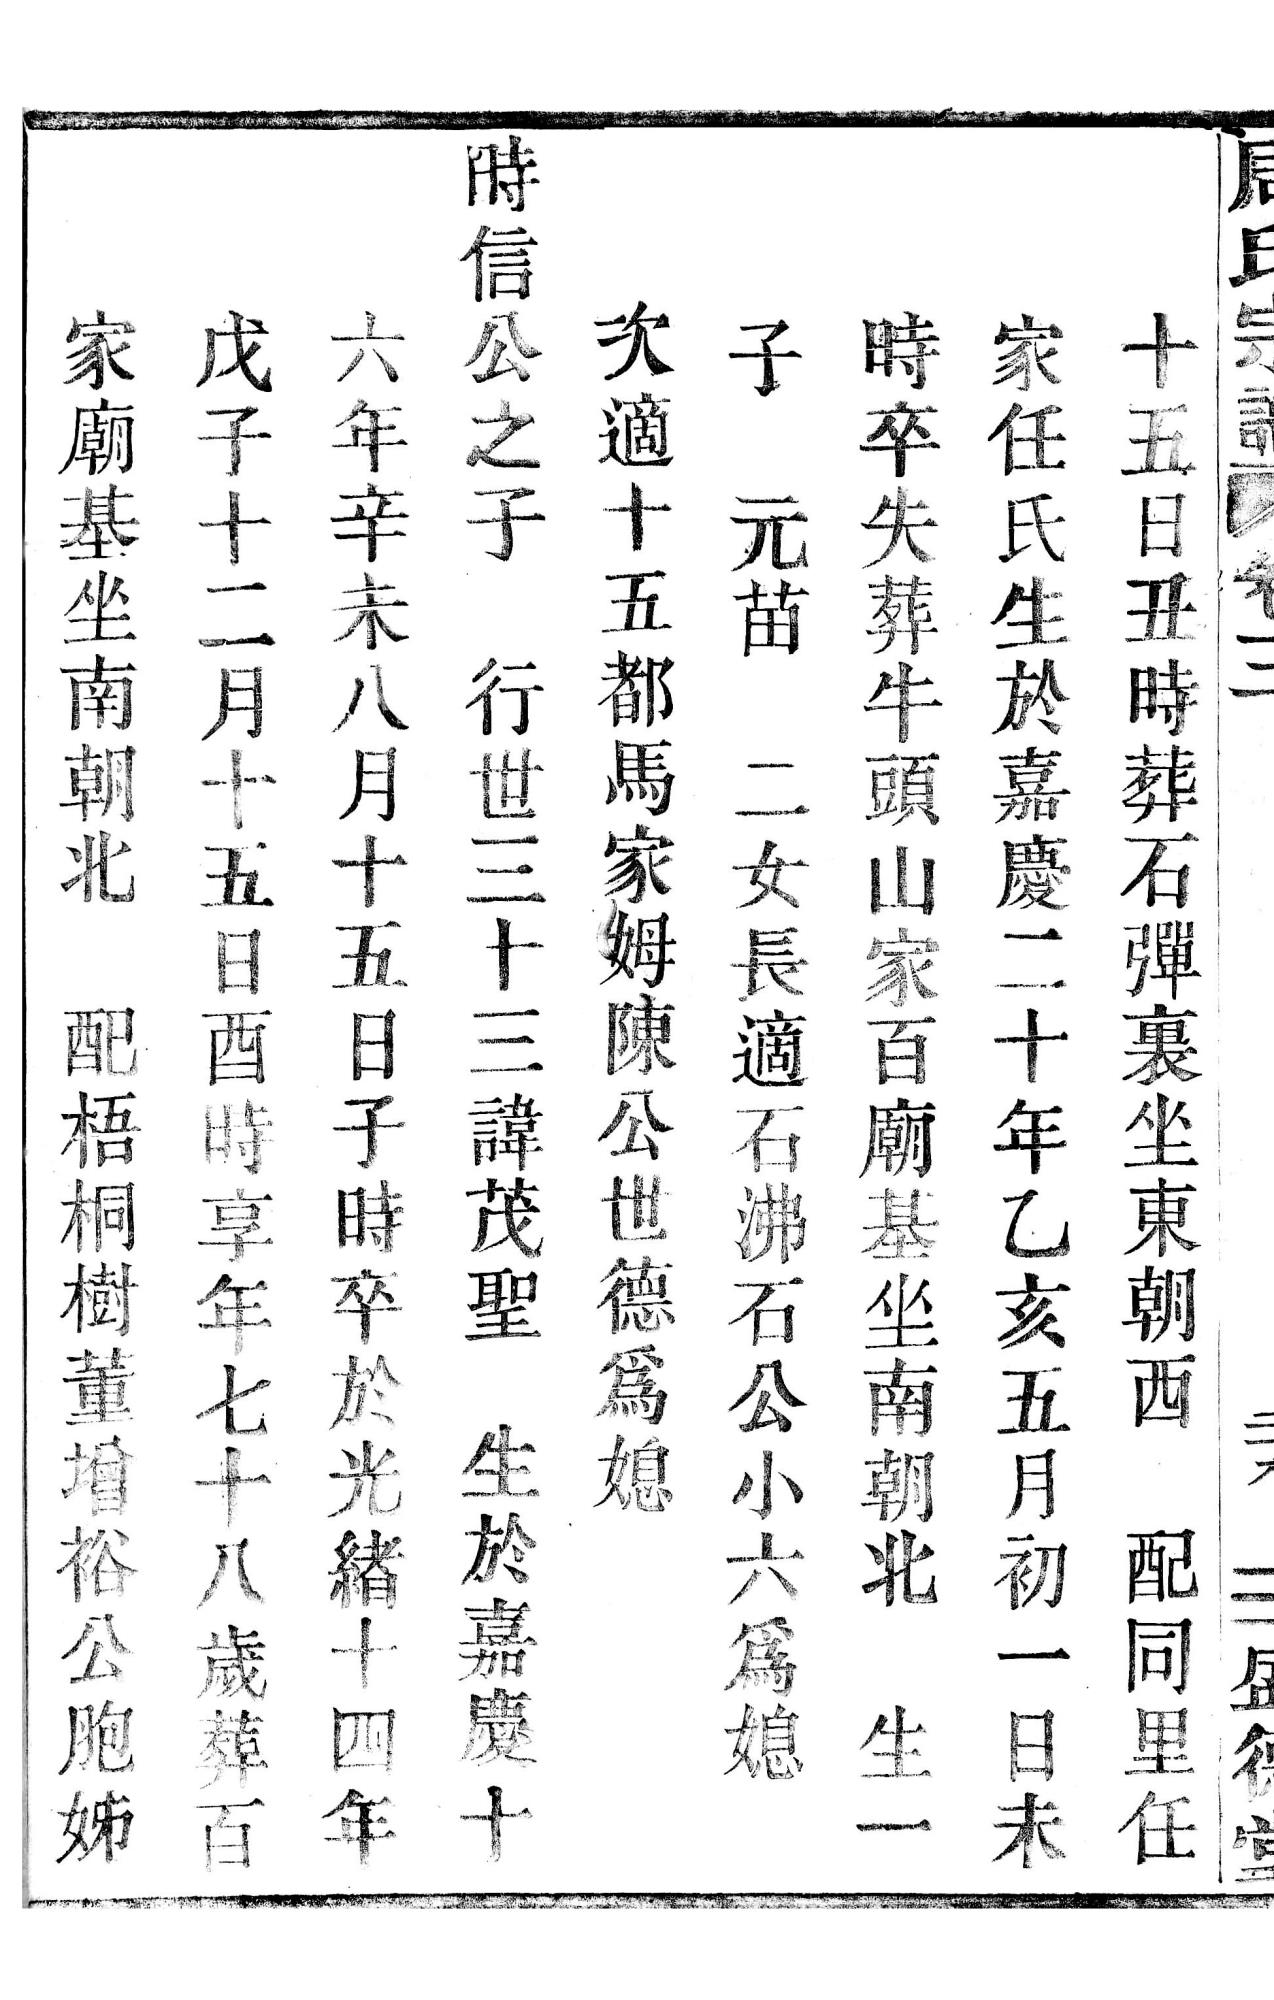 周氏宗譜 卷三 二六 三 盛德堂
十五日丑時葬石彈裏坐東朝西 配同里任
家任氏生於嘉慶二十年乙亥五月初一日未
時卒失葬牛頭山家百廟基坐南朝北 生一
子 元苗 二女長適石沸石公小六爲媳
次適十五都馬家姆陳公世德爲媳
時信公之子 行世三十三諱茂聖 生於嘉慶十
六年辛未八月十五日子時卒於光緒十四年
戊子十二月十五日酉時享年七十八歲葬百
家廟基坐南朝北 配梧桐樹董增裕公胞姊